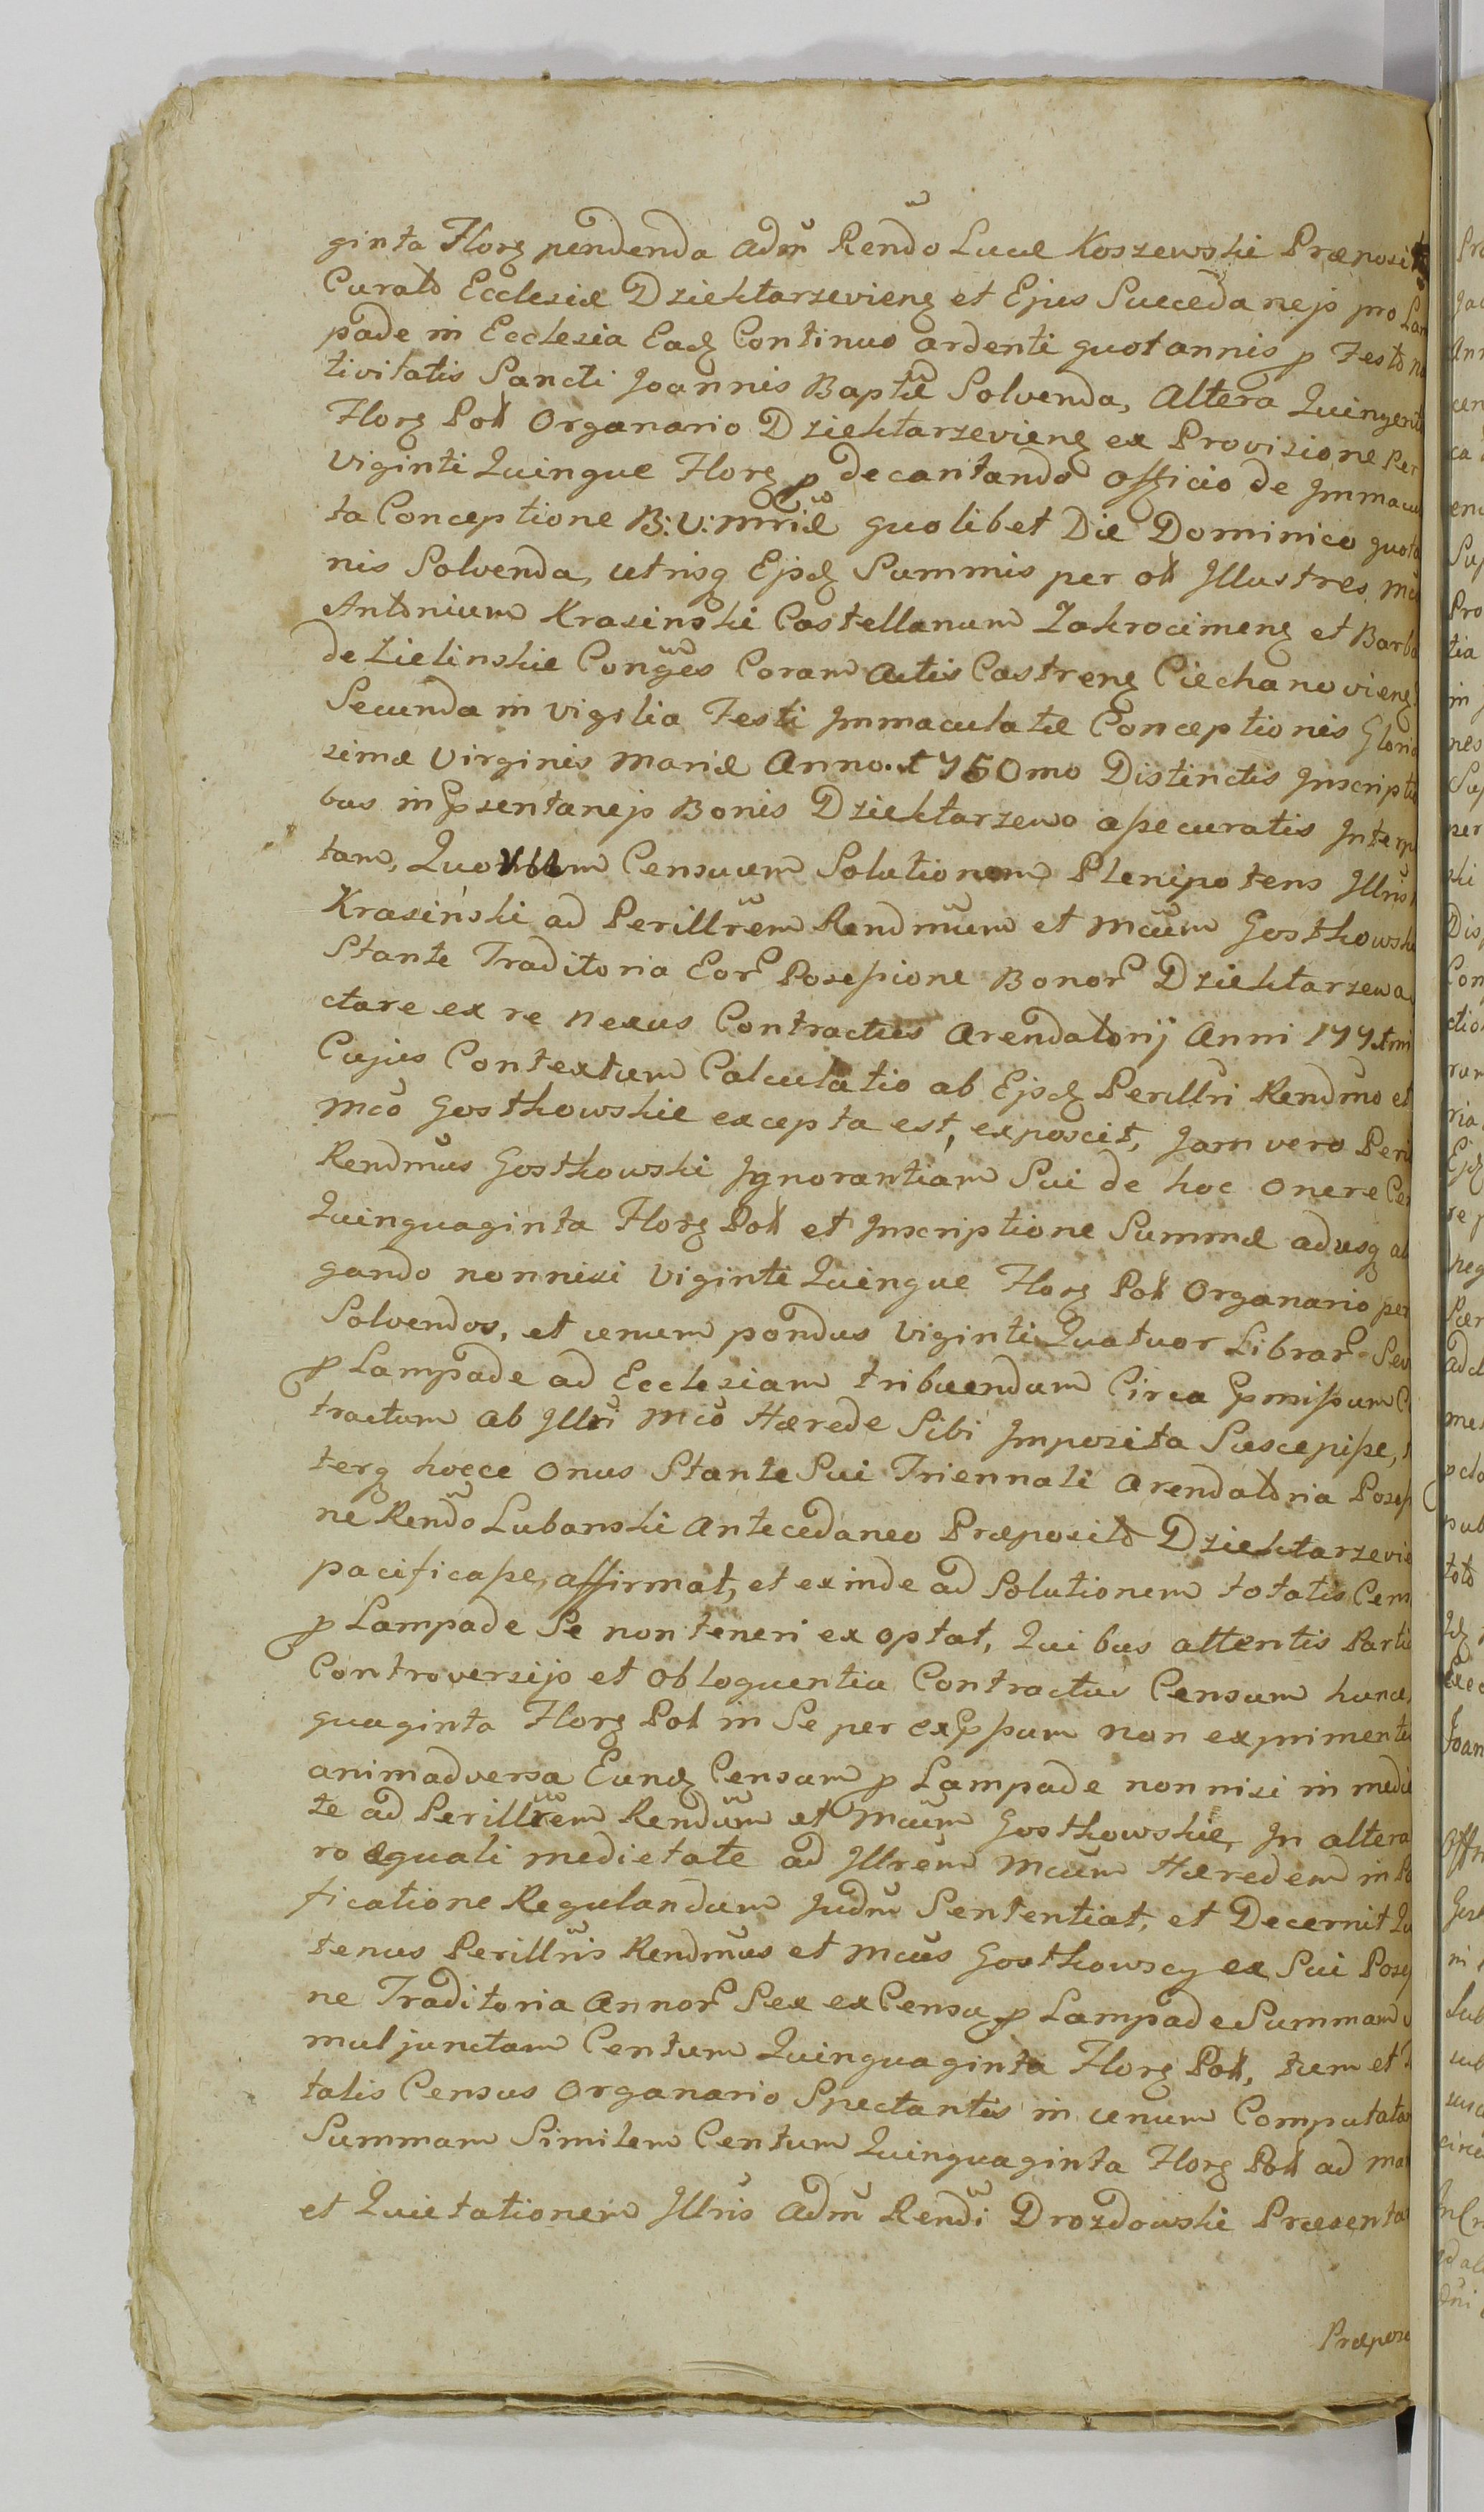 ginta Florꝫ pendenda Adm̃ Rendo Lucæ Koszewski Præposit
Curato Ecclesiæ Dziektarzevienꝫ et Ejus Succedanejs pro Lam
pade in Ecclesia Eadꝫ Continuo ardenti quotannis ꝓ Festo na
tivitatis Sancti Joannis Baptæ Solvenda, Altera Quingent
Florꝫ Poll Organario Dziektarzevienꝫ ex Provisione Per
Viginti Quinque Florꝫ ꝓ decantando officio de Immacu
ta Conceptione B: V: Mriæ quolibet Die Dominico quota
nis Solvenda, utrisqꝫ Ejsdꝫ Summis per oll Illustres Mcos
Antonium Krasinski Castellanum Zakrocimenꝫ et Barba
de Zielinskie Conges Coram Actis Castrenꝫ Ciechanovienꝫ
Secunda in vigilia Festi Immaculatæ Conceptionis Glorio
simæ Virginis Mariæ Anno 1750mo Distinctis Inscriptio
bus in Ꝓsentanejs Bonis Dziektarzewo assecuratis
tam, Quorum Censuum Solutionem Plenipotens Illris
Krasiński ad Perillrem Rendmum et Mcum Gostkowskie
Stante Traditoria Eor Possessione Bonor Dziektarzewa
ctare ex re nexus Contractus Arendatorij Anni 1771mi
Cujus Contextum Calculatio ab Ejsdꝫ Perillri Rendmo et
Mco Gostkowskie excepta est, exposcit, Jam vero Peril
Rendmus Gostkowski Ignorantiam Sui de hoc onere Cen
Quinquaginta Florꝫ Poll et Inscriptione Summæ adusqꝫ al
gando nonnisi Viginti Quinque Florꝫ Poll Organario per
Solvendos, et unum pondus Viginti Quatuor Librar Sevi
ꝓ Lampade ad Ecclesiam tribuendum Circa Ꝓmissum C
tractum ab Illri Mco Hærede Sibi Imposita Suscepisse,
terqꝫ hocce Onus Stante Sui Triennali Arendatoria Possess
ne Rendo Lubanski Antecedaneo Præposito Dziektarzevie
pacificasse, affirmat, et exinde ad Solutionem totalis Cens
ꝓ Lampade Se non teneri exoptat, Quibus attentis Partiu
Controversijs et Obloquentia Contractus Censum hunc
quaginta Florꝫ Poll in Se per exꝓssum non exprimentis
animadversa Eundꝫ Censum ꝓ Lampade nonnisi in medie
te ad Perillrem Rendum et Mcum Gostkowskie, In altera
ro æquali medietate ad Illrem Mcum Hæredem in Pa
ficatione Regulandum Judm Sententiat, et Decernit Qu
tenus Perillris Rendmus et Mcus Gostkowscy ex Sui Possess
ne Traditoria Annor Sex ex Censu ꝓ Lampade Summam
mul junctam Centum Quinquaginta Florꝫ Poll, tum et
talis Census Organario Spectantis in unum Computatam
Summam Similem Centum Quinquaginta Florꝫ Poll ad ma
et Quietationem Illris Adm̃ Rendi Drozdowski Præsenta
Præpos